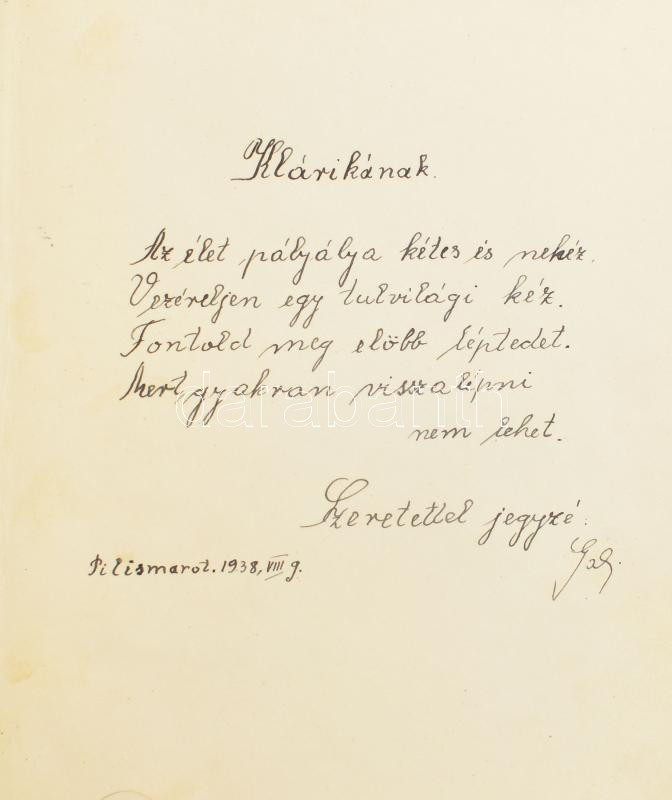 Klárikának.
Az élet pályálya kétes és nehéz.
Vezéreljen egy tulvilági kéz.
Fontold meg előbb léptedet.
Mert gyakran visszalépni
darabanth
nem lehet.
Szeretettel jegyzé.
Pilismarot. 1938, VIII 9.